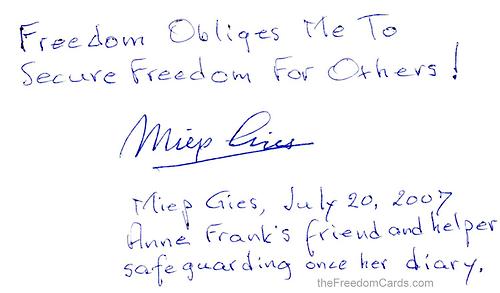 Freedom Obliges Me To
Secure Freedom For Others!
Miep Gies
Miep Gies, July 20, 2007
Anne Frank's friend and helper
safeguarding once her diary.
theFreedomCards.com